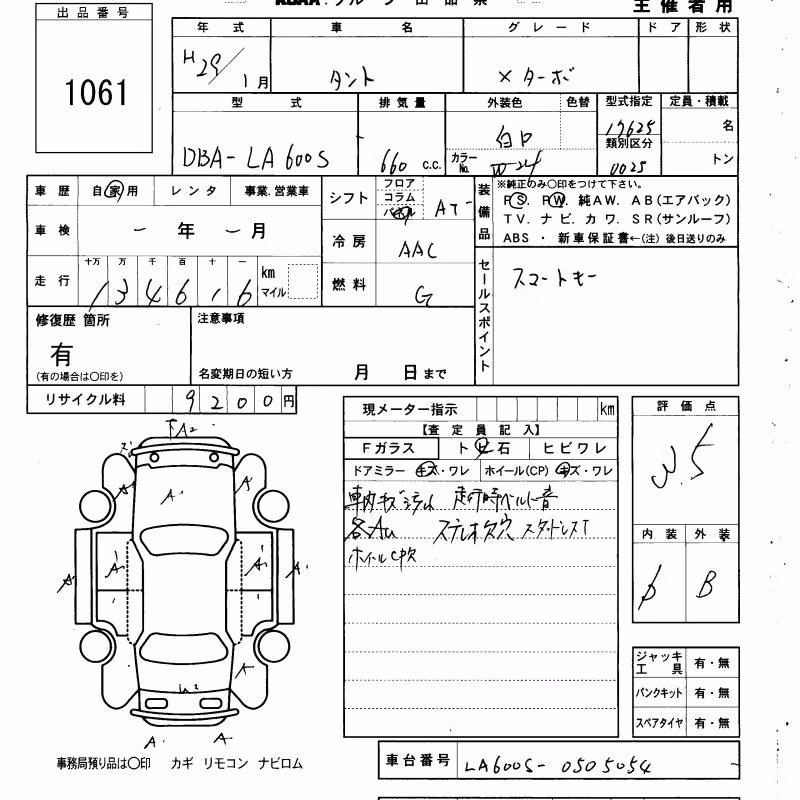 主催者用
出品番号
1061
年式 車名 グレード ドア 形状
H29/1月 タント Xターボ
型式 排気量 外装色 色替 型式指定 定員・積載
DBA-LA600S 660 c.c. 白 カラーNo. W-24 17625 名
類別区分
0025 トン
車歴 自家用 レンタ 事業.営業車
車検 ー年ー月
走行 十万 万 千 百 十 一
134616 km マイル
シフト フロア コラム パネル AT
冷房 AAC
燃料 G
装備品 ※純正のみ〇印をつけて下さい。
PS. PW. 純AW. AB(エアバック)
TV. ナビ. カワ. SR(サンルーフ)
ABS ・ 新車保証書←(注) 後日送りのみ
セールスポイント スマートキー
修復歴 箇所
有
(有の場合は〇印を)
注意事項
名変期日の短い方 月 日まで
リサイクル料 9200円
現メーター指示 km
【査定員記入】
Fガラス トビ石 ヒビワレ
ドアミラー キズ・ワレ ホイール(CP) キズ・ワレ
車内キズ 走行時ベルト音
ステレオ欠 穴 スタッドレスT
ホイールCP欠
評価点
3.5
内装 外装
B
ジャッキ工具 有・無
パンクキット 有・無
スペアタイヤ 有・無
A2
A'
A'
A'
A'
A'
A'
A'
A'
A'
事務局預り品は〇印 カギ リモコン ナビロム
車台番号 LA600S-0505054